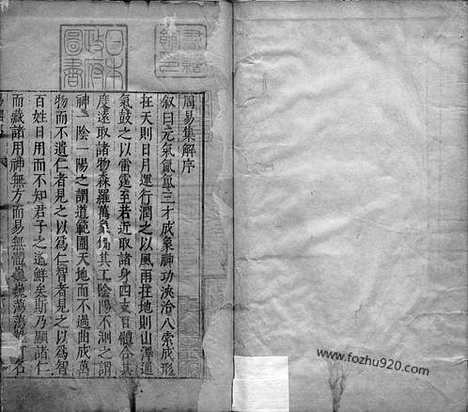 周易集解序
叙曰元氣氤氳三才成象神功浹洽八索成形
在天則日月運行潤之以風雨在地則山澤通
氣鼓之以雷霆至若近取諸身四支百體合其
度遠取諸物森羅萬象備其工陰陽不測之謂
神一陰一陽之謂道範圍天地而不過曲成萬
物而不遺仁者見之以爲仁智者見之以爲智
百姓日用而不知君子之道鮮矣斯乃顯諸仁
而藏諸用神無方而易無體巍巍蕩蕩
日本政府圖書
www.fozhu920.com